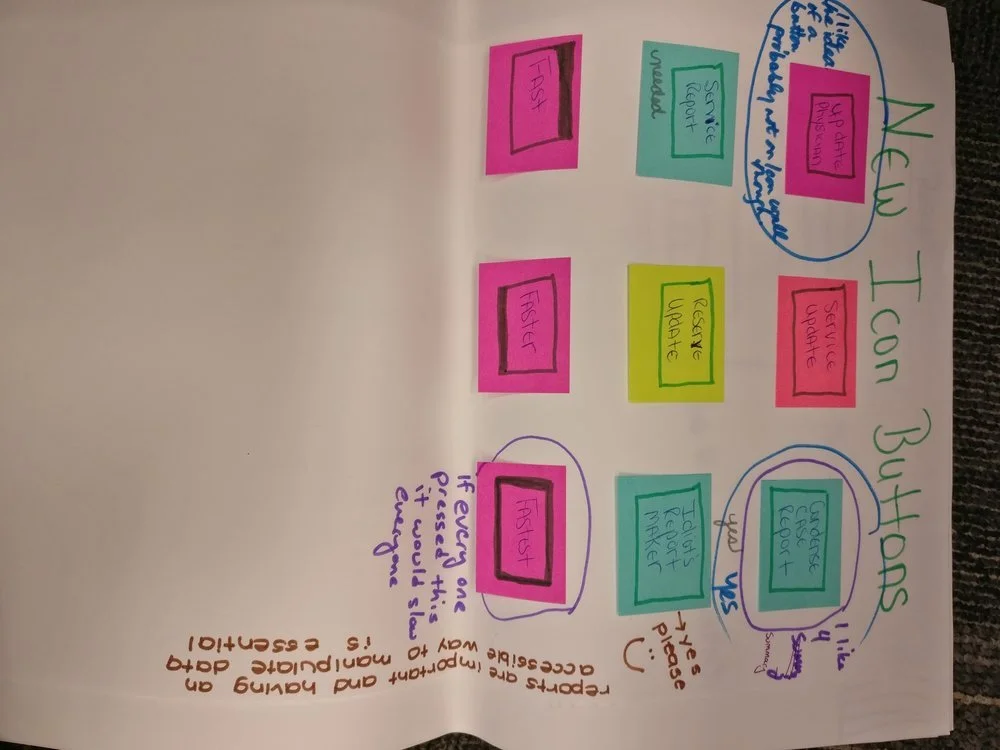 New Icon Buttons
I like
the idea
of a
button
probably not on
though
UPDATE
Physician
Service
Update
Condense
CASE
Report
I like
4
Summary
yes
yes
Service
Report
needed
Reserve
Update
Idiot's
Report
MAKER
→ yes
please
FAST
FASTER
FASTEST
If every one
pressed this
it would slow
everyone
reports are important and having an
accessible way to manipulate data
is essential